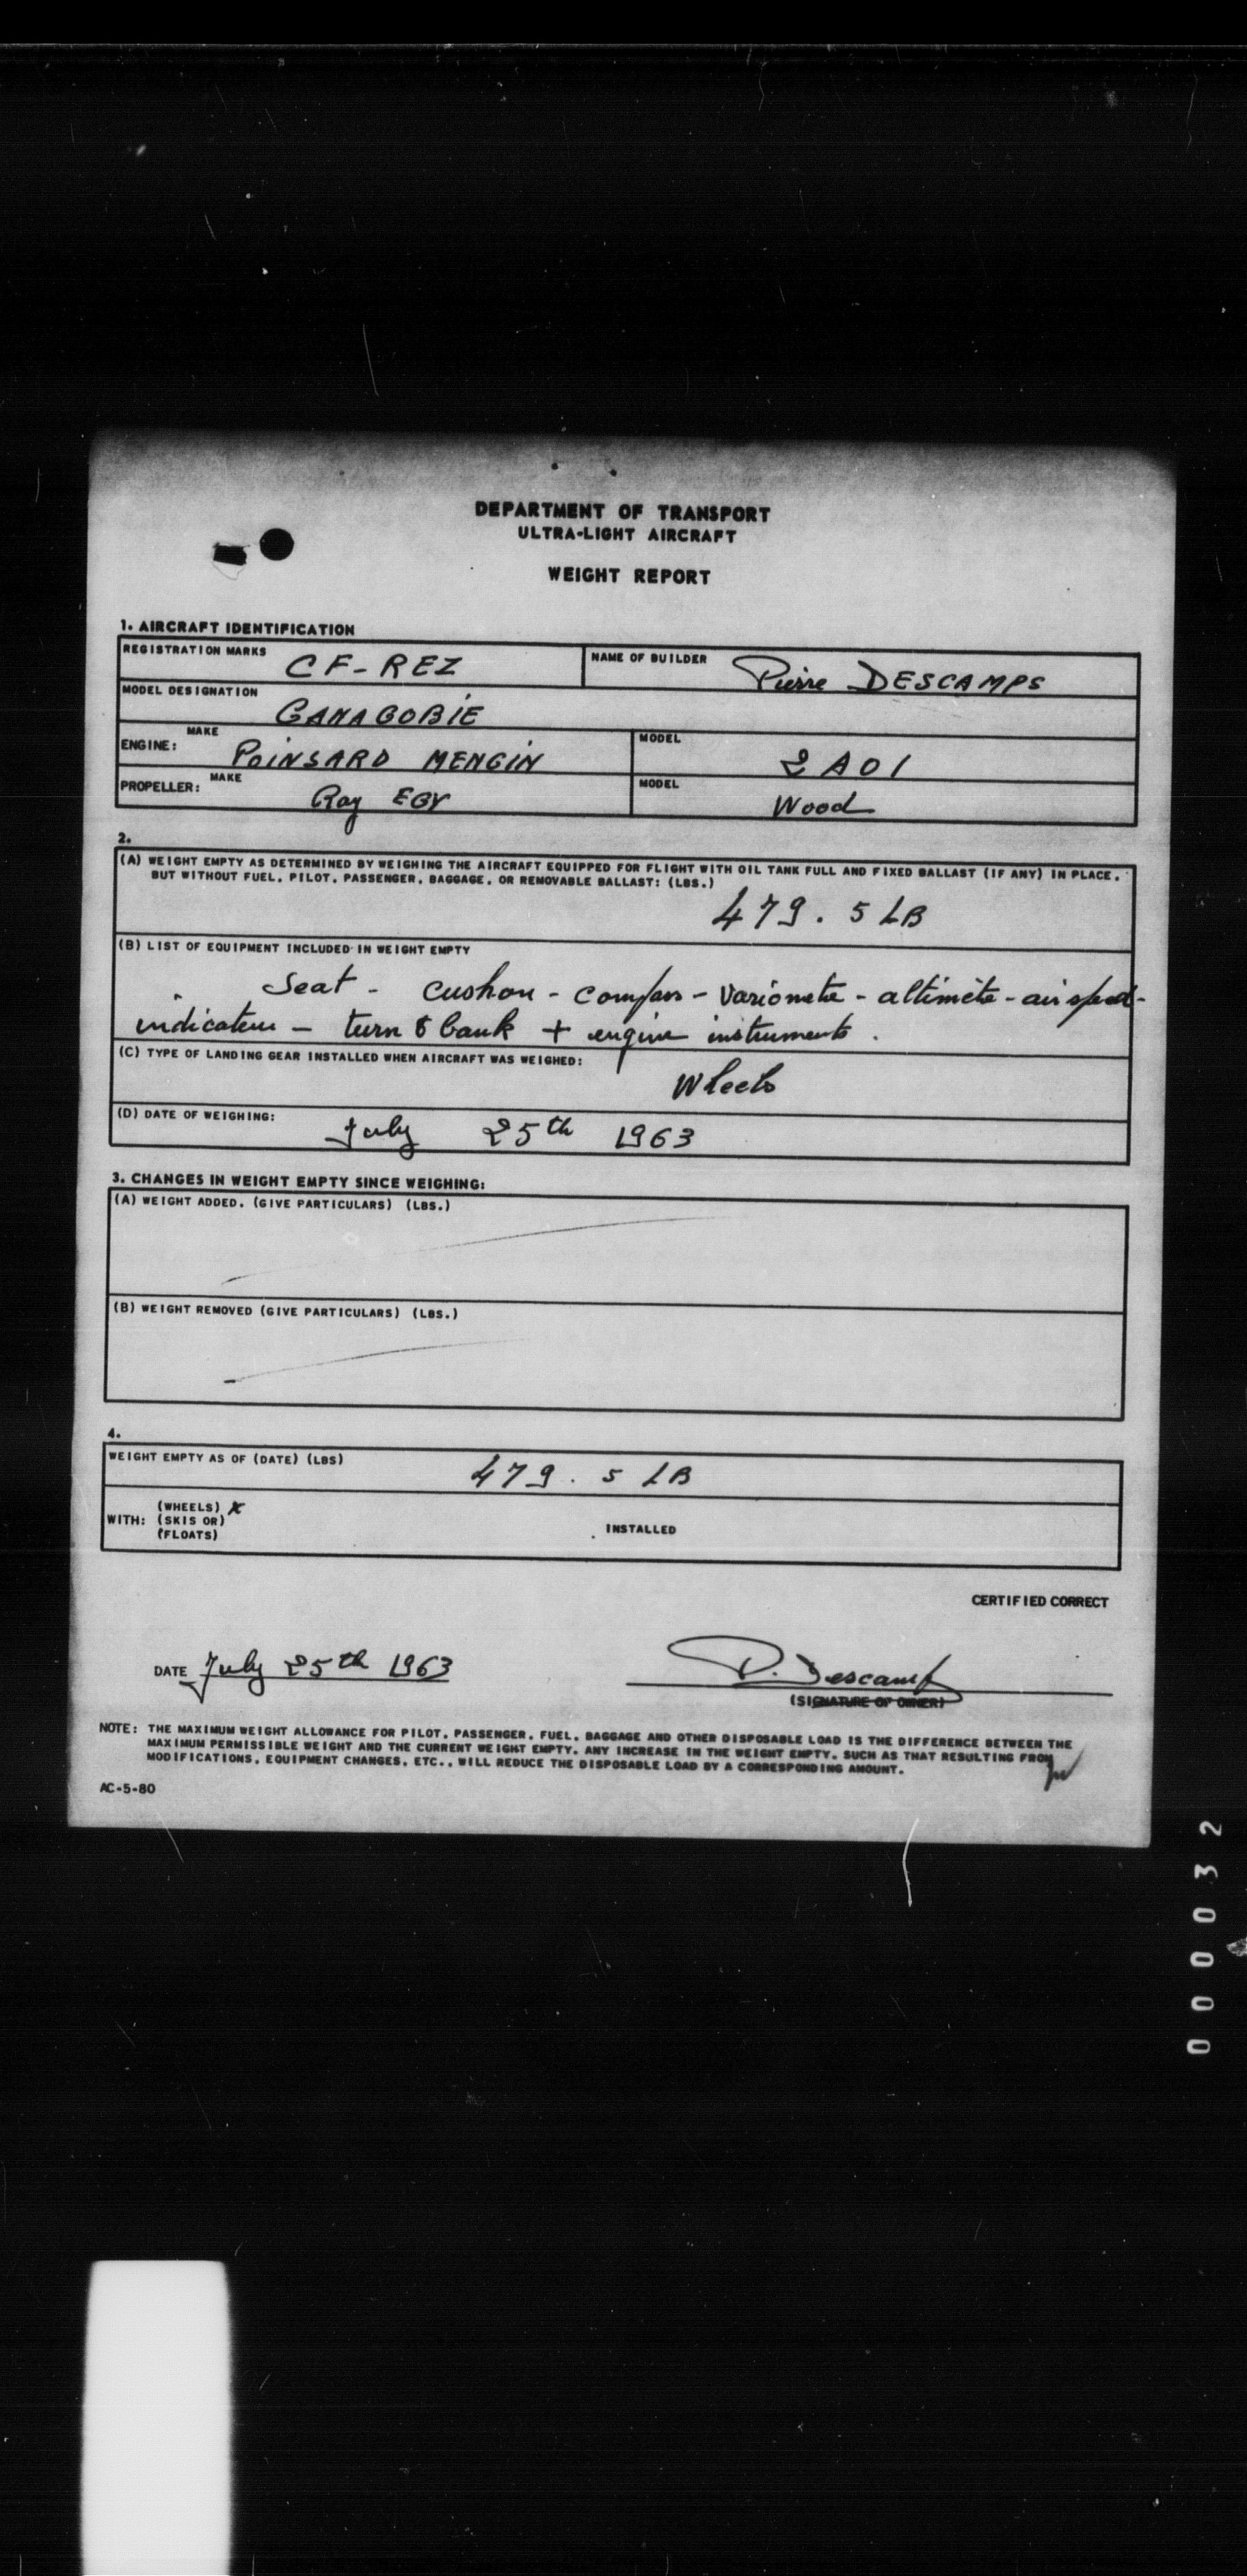 DEPARTMENT OF TRANSPORT
ULTRA-LIGHT AIRCRAFT
WEIGHT REPORT
1. AIRCRAFT IDENTIFICATION
REGISTRATION MARKS CF-REZ NAME OF BUILDER Pierre DESCAMPS
MODEL DESIGNATION GANAGOBIE
ENGINE: MAKE POINSARD MENGIN MODEL 2A01
PROPELLER: MAKE Ray EGY MODEL Wood
2.
(A) WEIGHT EMPTY AS DETERMINED BY WEIGHING THE AIRCRAFT EQUIPPED FOR FLIGHT WITH OIL TANK FULL AND FIXED BALLAST (IF ANY) IN PLACE,
BUT WITHOUT FUEL, PILOT, PASSENGER, BAGGAGE, OR REMOVABLE BALLAST: (LBS.)
479.5 LB
(B) LIST OF EQUIPMENT INCLUDED IN WEIGHT EMPTY
Seat - cushon - compass - variometre - altimètre - airspeed-
indicateur - turn & bank + engine instruments.
(C) TYPE OF LANDING GEAR INSTALLED WHEN AIRCRAFT WAS WEIGHED:
Wheels
(D) DATE OF WEIGHING: July 25th 1963
3. CHANGES IN WEIGHT EMPTY SINCE WEIGHING:
(A) WEIGHT ADDED. (GIVE PARTICULARS) (LBS.)
(B) WEIGHT REMOVED (GIVE PARTICULARS) (LBS.)
4.
WEIGHT EMPTY AS OF (DATE) (LBS) 479.5 LB
(WHEELS) X
WITH: (SKIS OR) INSTALLED
(FLOATS)
CERTIFIED CORRECT
DATE July 25th 1963 P. Descamps
(SIGNATURE OF OWNER)
NOTE: THE MAXIMUM WEIGHT ALLOWANCE FOR PILOT, PASSENGER, FUEL, BAGGAGE AND OTHER DISPOSABLE LOAD IS THE DIFFERENCE BETWEEN THE
MAXIMUM PERMISSIBLE WEIGHT AND THE CURRENT WEIGHT EMPTY. ANY INCREASE IN THE WEIGHT EMPTY, SUCH AS THAT RESULTING FROM
MODIFICATIONS, EQUIPMENT CHANGES, ETC., WILL REDUCE THE DISPOSABLE LOAD BY A CORRESPONDING AMOUNT.
AC-5-80
000032